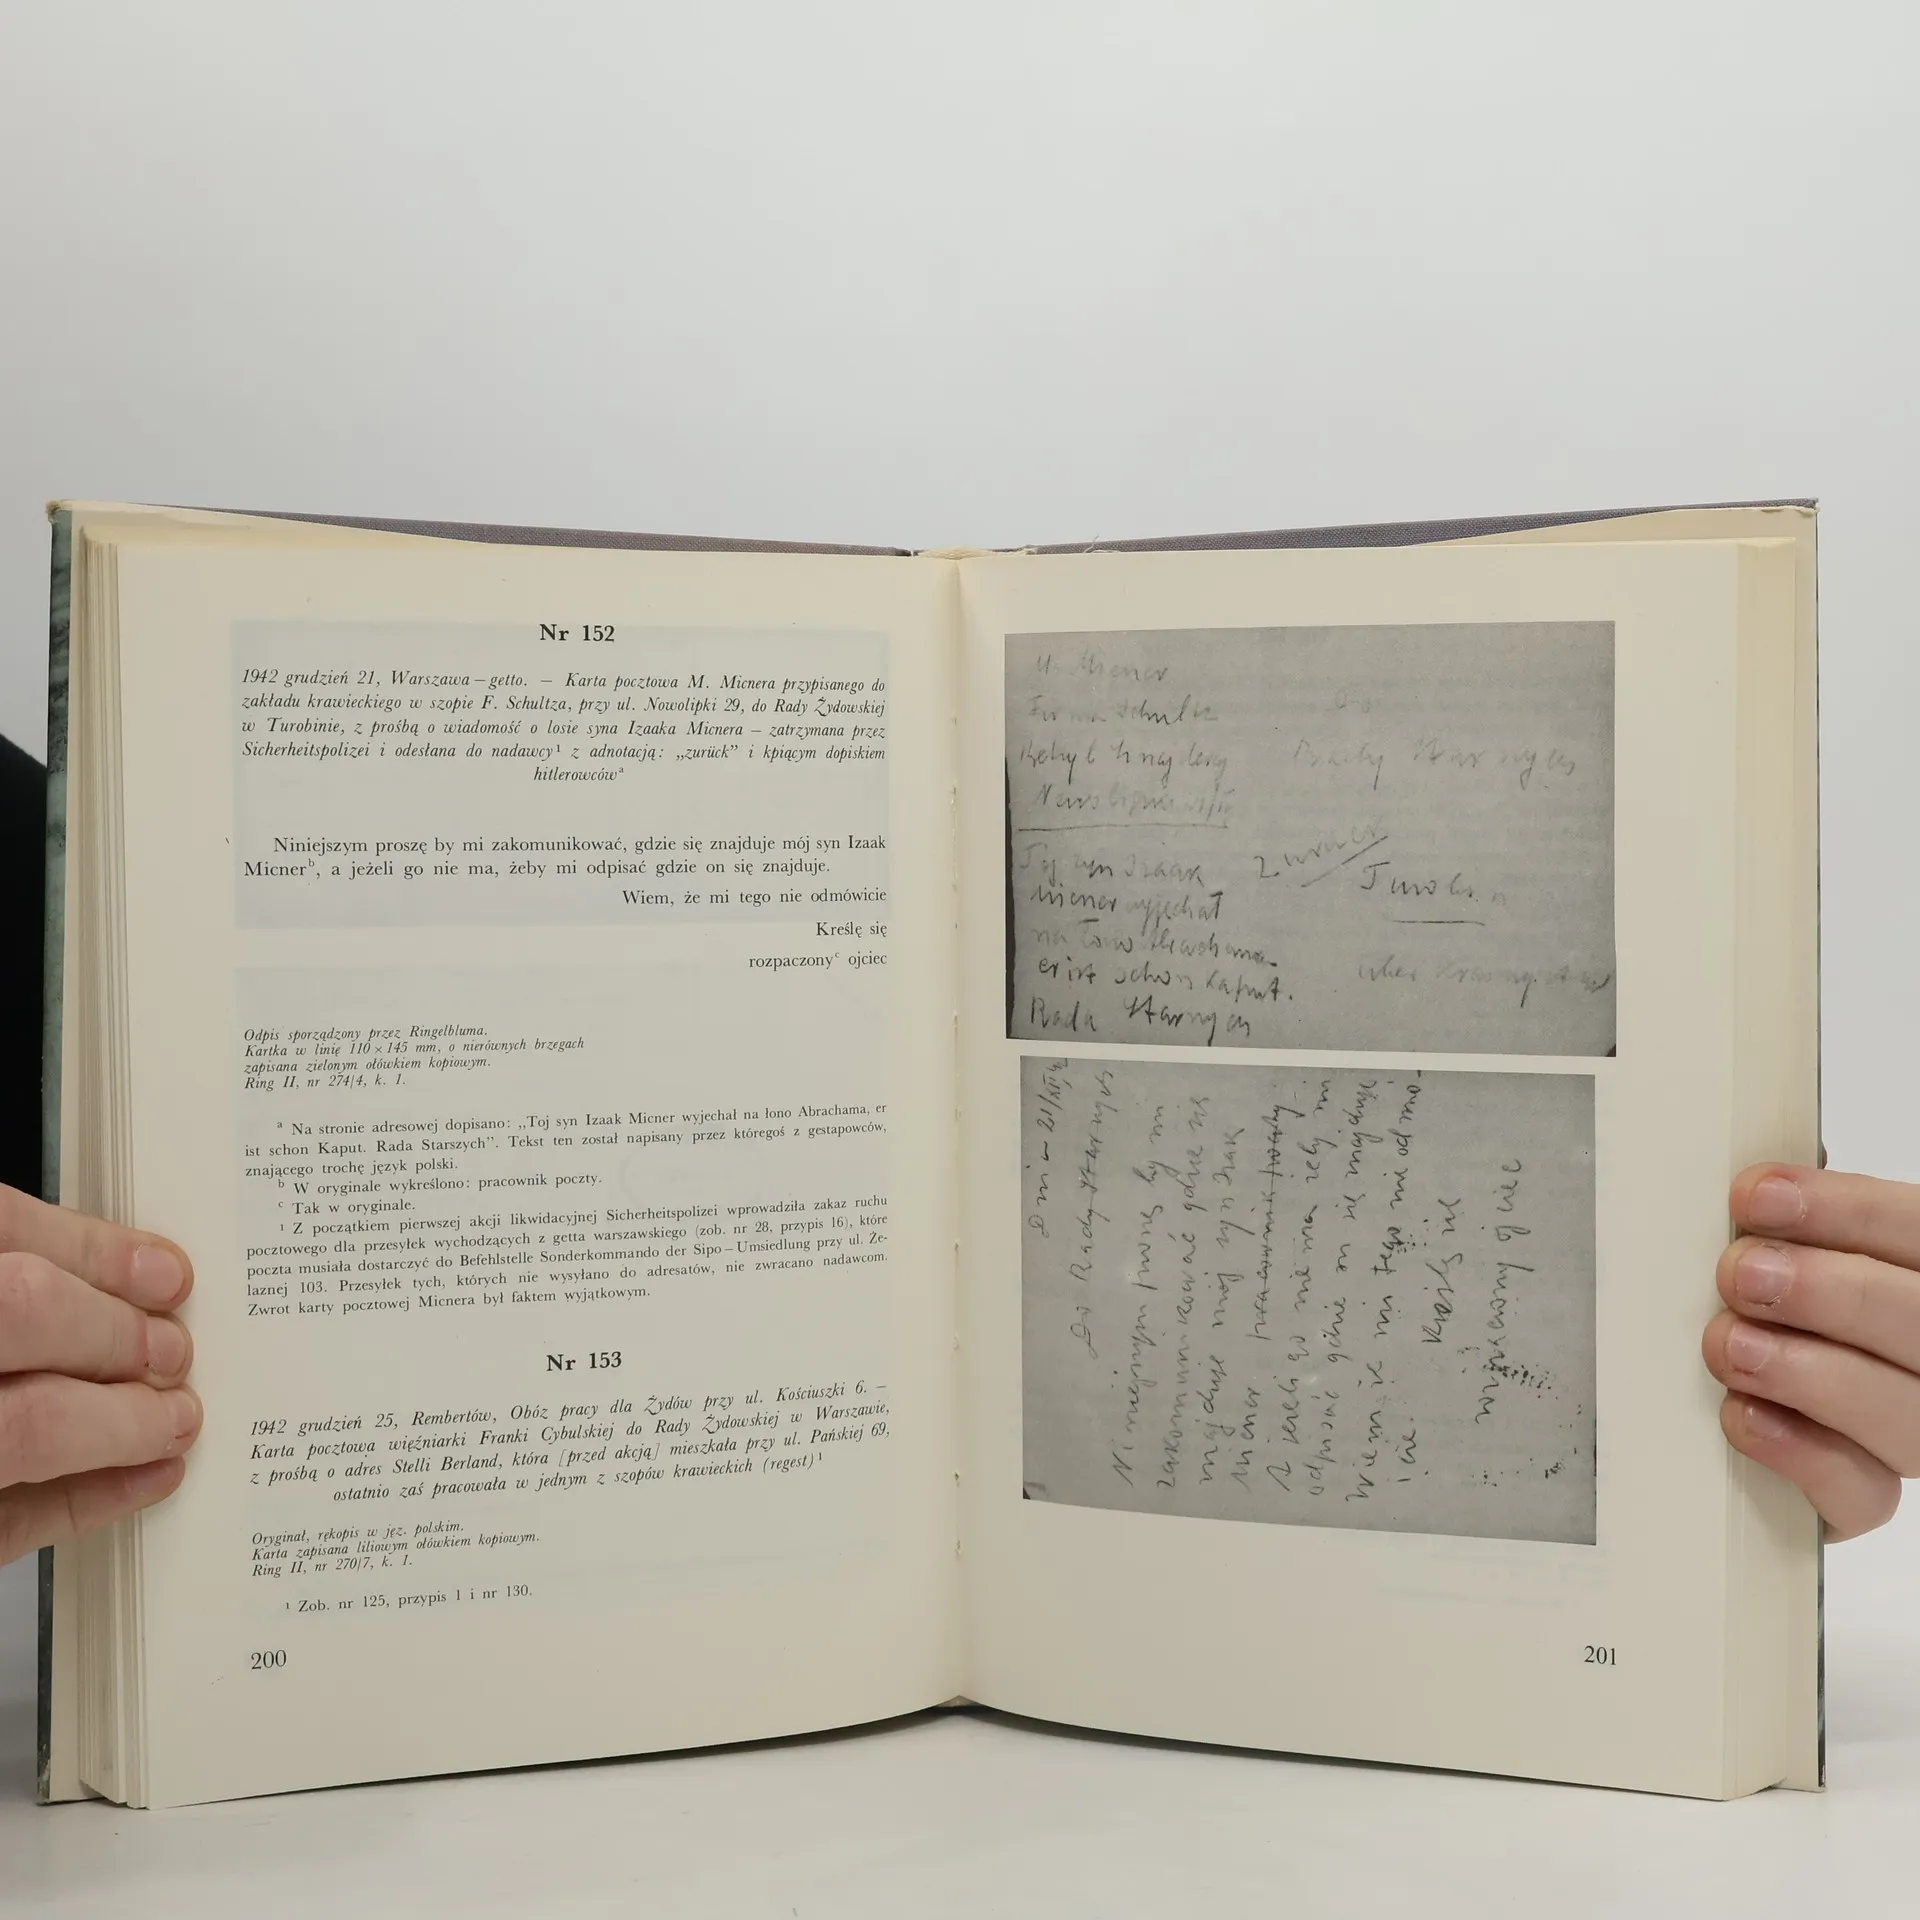 Nr 152
1942 grudzień 21, Warszawa – getto. — Karta pocztowa M. Micnera przypisanego do
zakładu krawieckiego w szopie F. Schultza, przy ul. Nowolipki 29, do Rady Żydowskiej
w Turobinie, z prośbą o wiadomość o losie syna Izaaka Micnera — zatrzymana przez
Sicherheitspolizei i odesłana do nadawcy¹ z adnotacją: „zurück” i kpiącym dopiskiem
hitlerowcówᵃ
Niniejszym proszę by mi zakomunikować, gdzie się znajduje mój syn Izaak
Micnerᵇ, a jeżeli go nie ma, żeby mi odpisać gdzie on się znajduje.
Wiem, że mi tego nie odmówicie
Kreślę się
rozpaczonyᶜ ojciec
Odpis sporządzony przez Ringelbluma.
Kartka w linię 110 × 145 mm, o nierównych brzegach
zapisana zielonym ołówkiem kopiowym.
Ring II, nr 274/4, k. 1.
ᵃ Na stronie adresowej dopisano: „Toj syn Izaak Micner wyjechał na łono Abrachama, er
ist schon Kaput. Rada Starszych”. Tekst ten został napisany przez któregoś z gestapowców,
znającego trochę język polski.
ᵇ W oryginale wykreślono: pracownik poczty.
ᶜ Tak w oryginale.
¹ Z początkiem pierwszej akcji likwidacyjnej Sicherheitspolizei wprowadziła zakaz ruchu
pocztowego dla przesyłek wychodzących z getta warszawskiego (zob. nr 28, przypis 16), które
poczta musiała dostarczyć do Befehlstelle Sonderkommando der Sipo – Umsiedlung przy ul. Że-
laznej 103. Przesyłek tych, których nie wysyłano do adresatów, nie zwracano nadawcom.
Zwrot karty pocztowej Micnera był faktem wyjątkowym.
Nr 153
1942 grudzień 25, Rembertów, Obóz pracy dla Żydów przy ul. Kościuszki 6. —
Karta pocztowa więźniarki Franki Cybulskiej do Rady Żydowskiej w Warszawie,
z prośbą o adres Stelli Berland, która [przed akcją] mieszkała przy ul. Pańskiej 69,
ostatnio zaś pracowała w jednym z szopów krawieckich (regest)¹
Oryginał, rękopis w jęz. polskim.
Karta zapisana liliowym ołówkiem kopiowym.
Ring II, nr 270/7, k. 1.
¹ Zob. nr 125, przypis 1 i nr 130.
200
Micner
Firma Schultz
Rady Starszych
Toj syn Izaak
Micner wyjechał
na łono Abrachama
er ist schon kaput.
Rada Starszych
Turobin
über
Dnia 21/XII
Do Rady Starszych
Niniejszym proszę by mi
zakomunikować gdzie się
znajduje mój syn Izak
Micner pracownik poczty.
A jeżeli go nie ma żeby mi
odpisać gdzie on się znajduje
Wiem że mi tego nie odmó-
wicie.
Kreślę się
rozpaczony ojciec
201